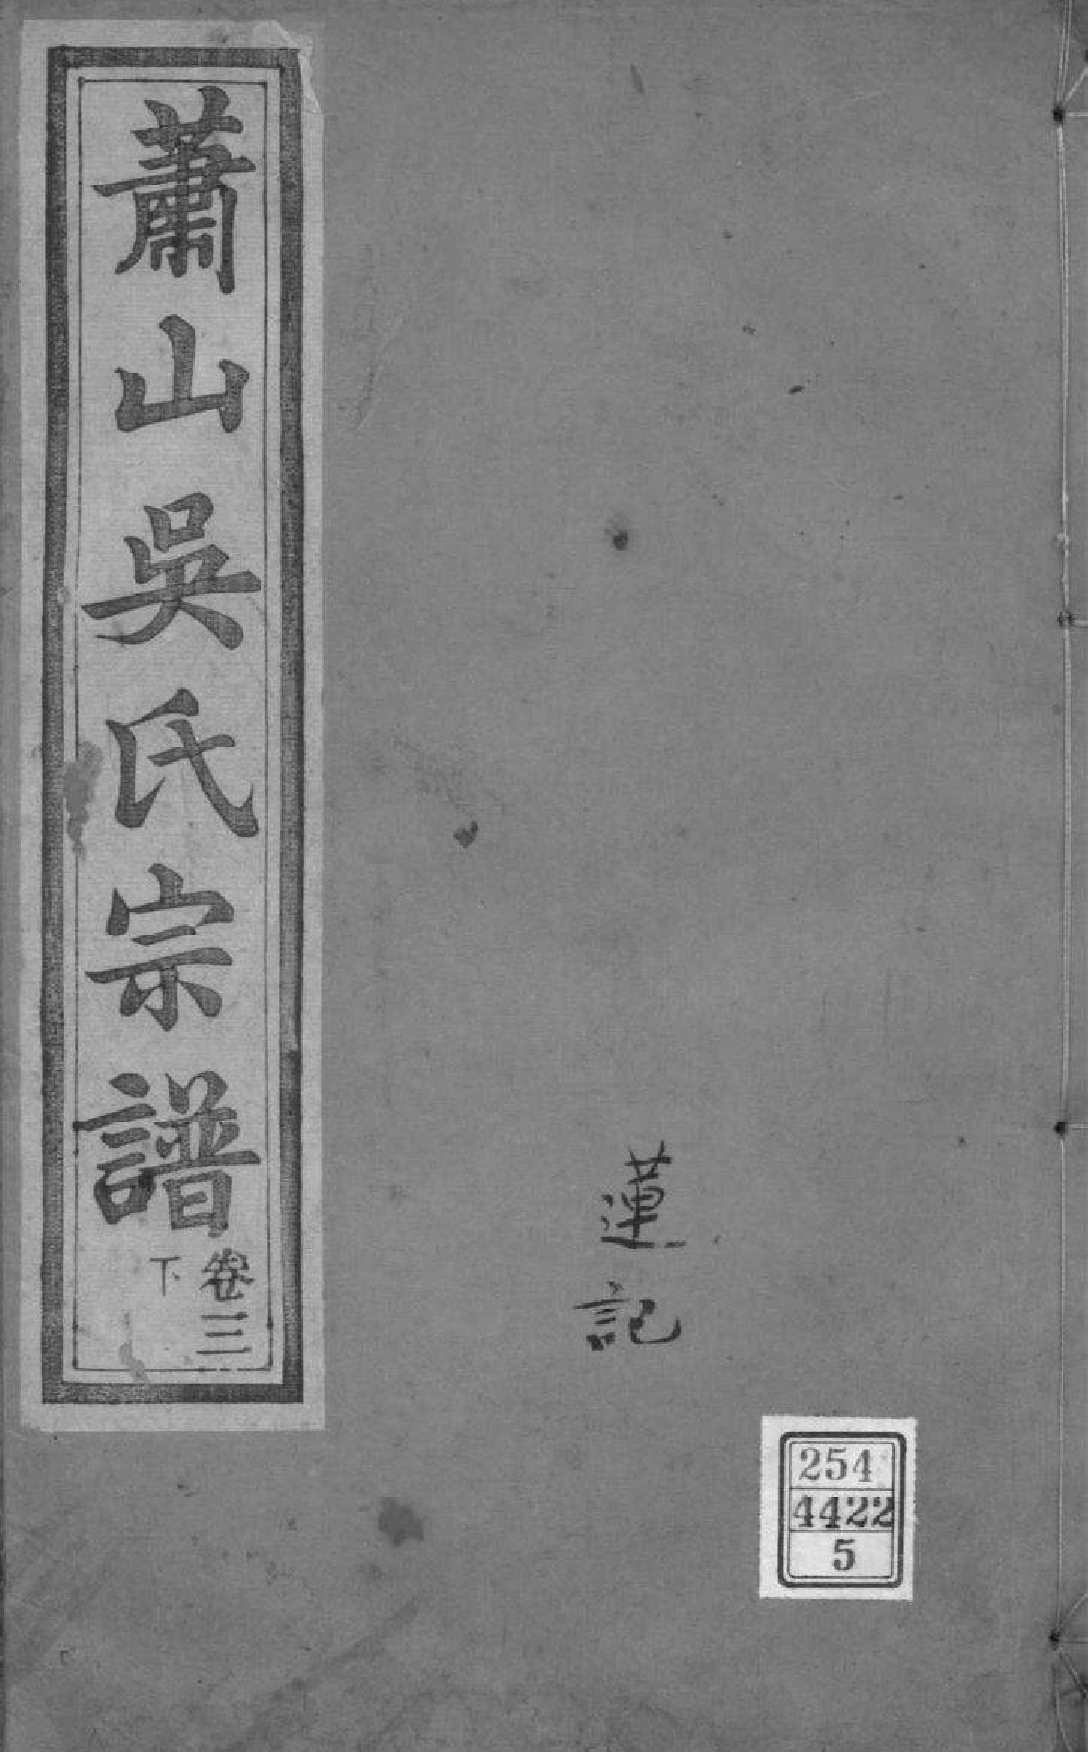 蕭山吳氏宗譜
卷三
下
蓮記
254
4422
5